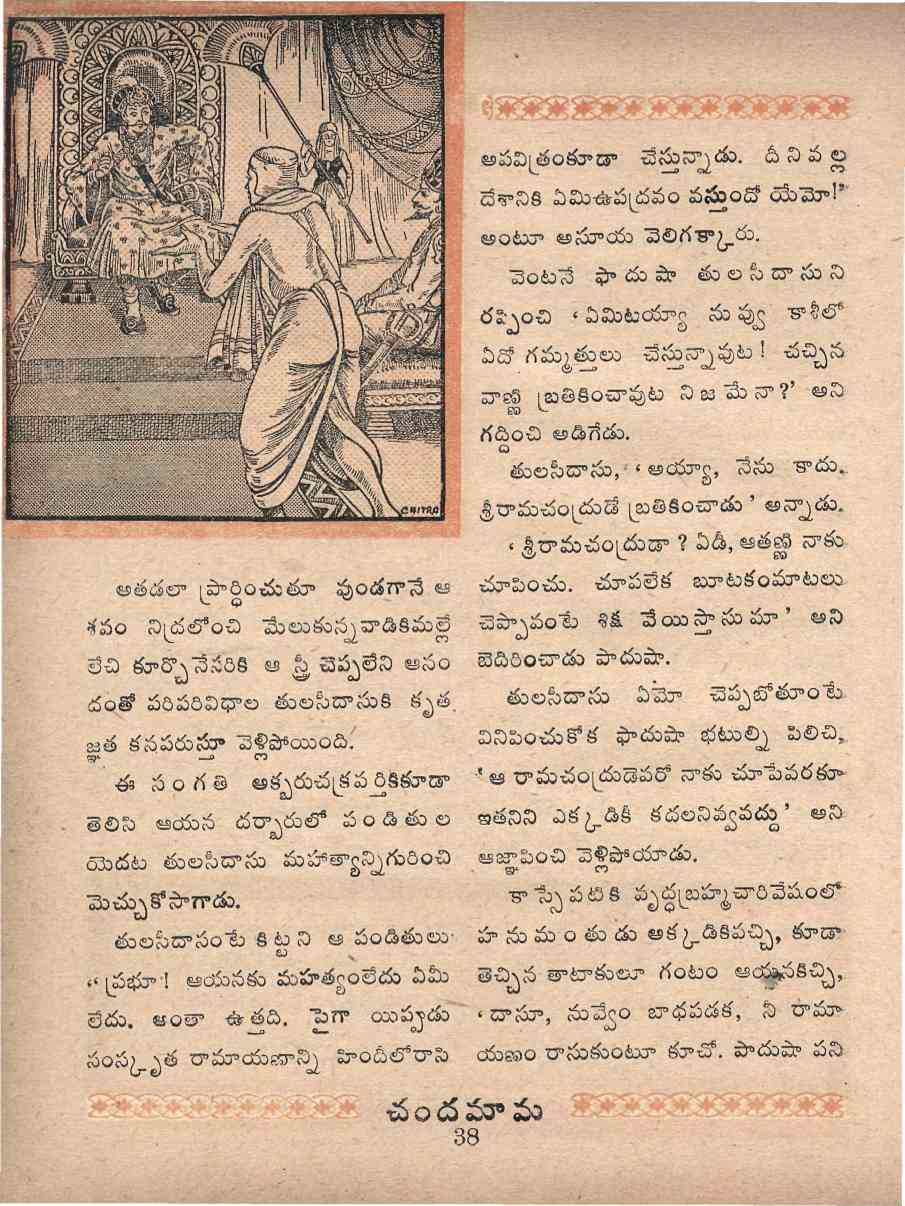 CHITRA
అతడలా ప్రార్థించుతూ వుండగానే ఆ
శవం నిద్రలోంచి మేలుకున్నవాడికిమల్లే
లేచి కూర్చొనేసరికి ఆ స్త్రీ చెప్పలేని ఆనం
దంతో పరిపరివిధాల తులసీదాసుకి కృత
జ్ఞత కనపరుస్తూ వెళ్లిపోయింది.
ఈ సంగతి అక్బరుచక్రవర్తికికూడా
తెలిసి ఆయన దర్బారులో పండితుల
యెదట తులసీదాసు మహాత్యాన్నిగురించి
మెచ్చుకోసాగాడు.
తులసీదాసంటే కిట్టని ఆ పండితులు
“ప్రభూ! ఆయనకు మహత్యంలేదు ఏమీ
లేదు. అంతా ఉత్తది. పైగా యిప్పుడు
సంస్కృత రామాయణాన్ని హిందీలోరాసి
అపవిత్రంకూడా చేస్తున్నాడు. దీనివల్ల
దేశానికి ఏమిఉపద్రవం వస్తుందో యేమో!”
అంటూ అసూయ వెలిగక్కారు.
వెంటనే ఫాదుషా తులసీదాసుని
రప్పించి ‘ఏమిటయ్యా నువ్వు కాశీలో
ఏదో గమ్మత్తులు చేస్తున్నావుట! చచ్చిన
వాణ్ణి బ్రతికించావుట నిజమేనా?’ అని
గద్దించి అడిగేడు.
తులసీదాసు, ‘అయ్యా, నేను కాదు.
శ్రీరామచంద్రుడే బ్రతికించాడు’ అన్నాడు.
‘శ్రీరామచంద్రుడా? ఏడీ, ఆతణ్ణి నాకు
చూపించు. చూపలేక బూటకంమాటలు
చెప్పావంటే శిక్ష వేయిస్తాసుమా’ అని
బెదిరించాడు పాదుషా.
తులసీదాసు ఏమో చెప్పబోతూంటే
వినిపించుకోక ఫాదుషా భటుల్ని పిలిచి,
‘ఆ రామచంద్రుడెవరో నాకు చూపేవరకూ
ఇతనిని ఎక్కడికీ కదలనివ్వవద్దు’ అని
ఆజ్ఞాపించి వెళ్లిపోయాడు.
కాస్సేపటికి వృద్ధబ్రహ్మచారివేషంలో
హనుమంతుడు అక్కడికివచ్చి, కూడా
తెచ్చిన తాటాకులూ గంటం ఆయనకిచ్చి,
‘దాసూ, నువ్వేం బాధపడక, నీ రామా
యణం రాసుకుంటూ కూచో. పాదుషా పని
చందమామ
38